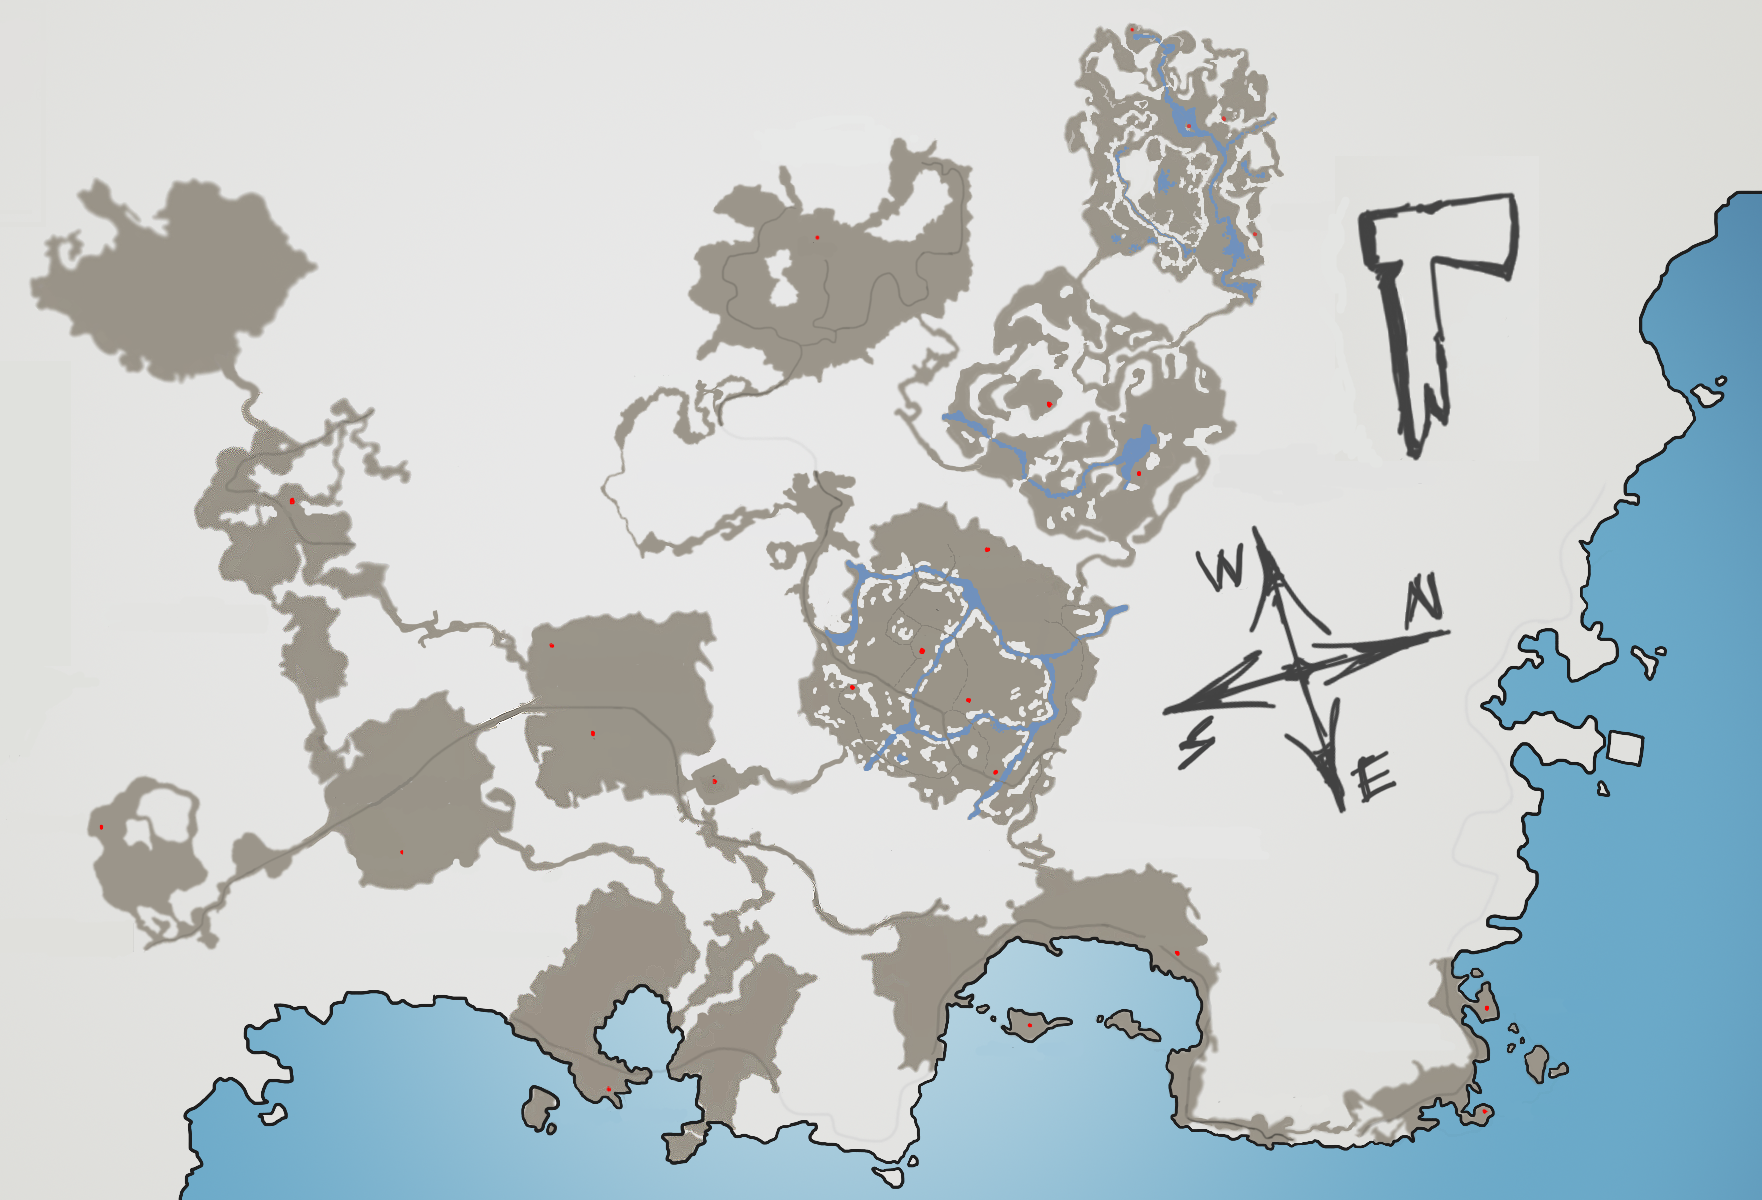 W
N
S
E